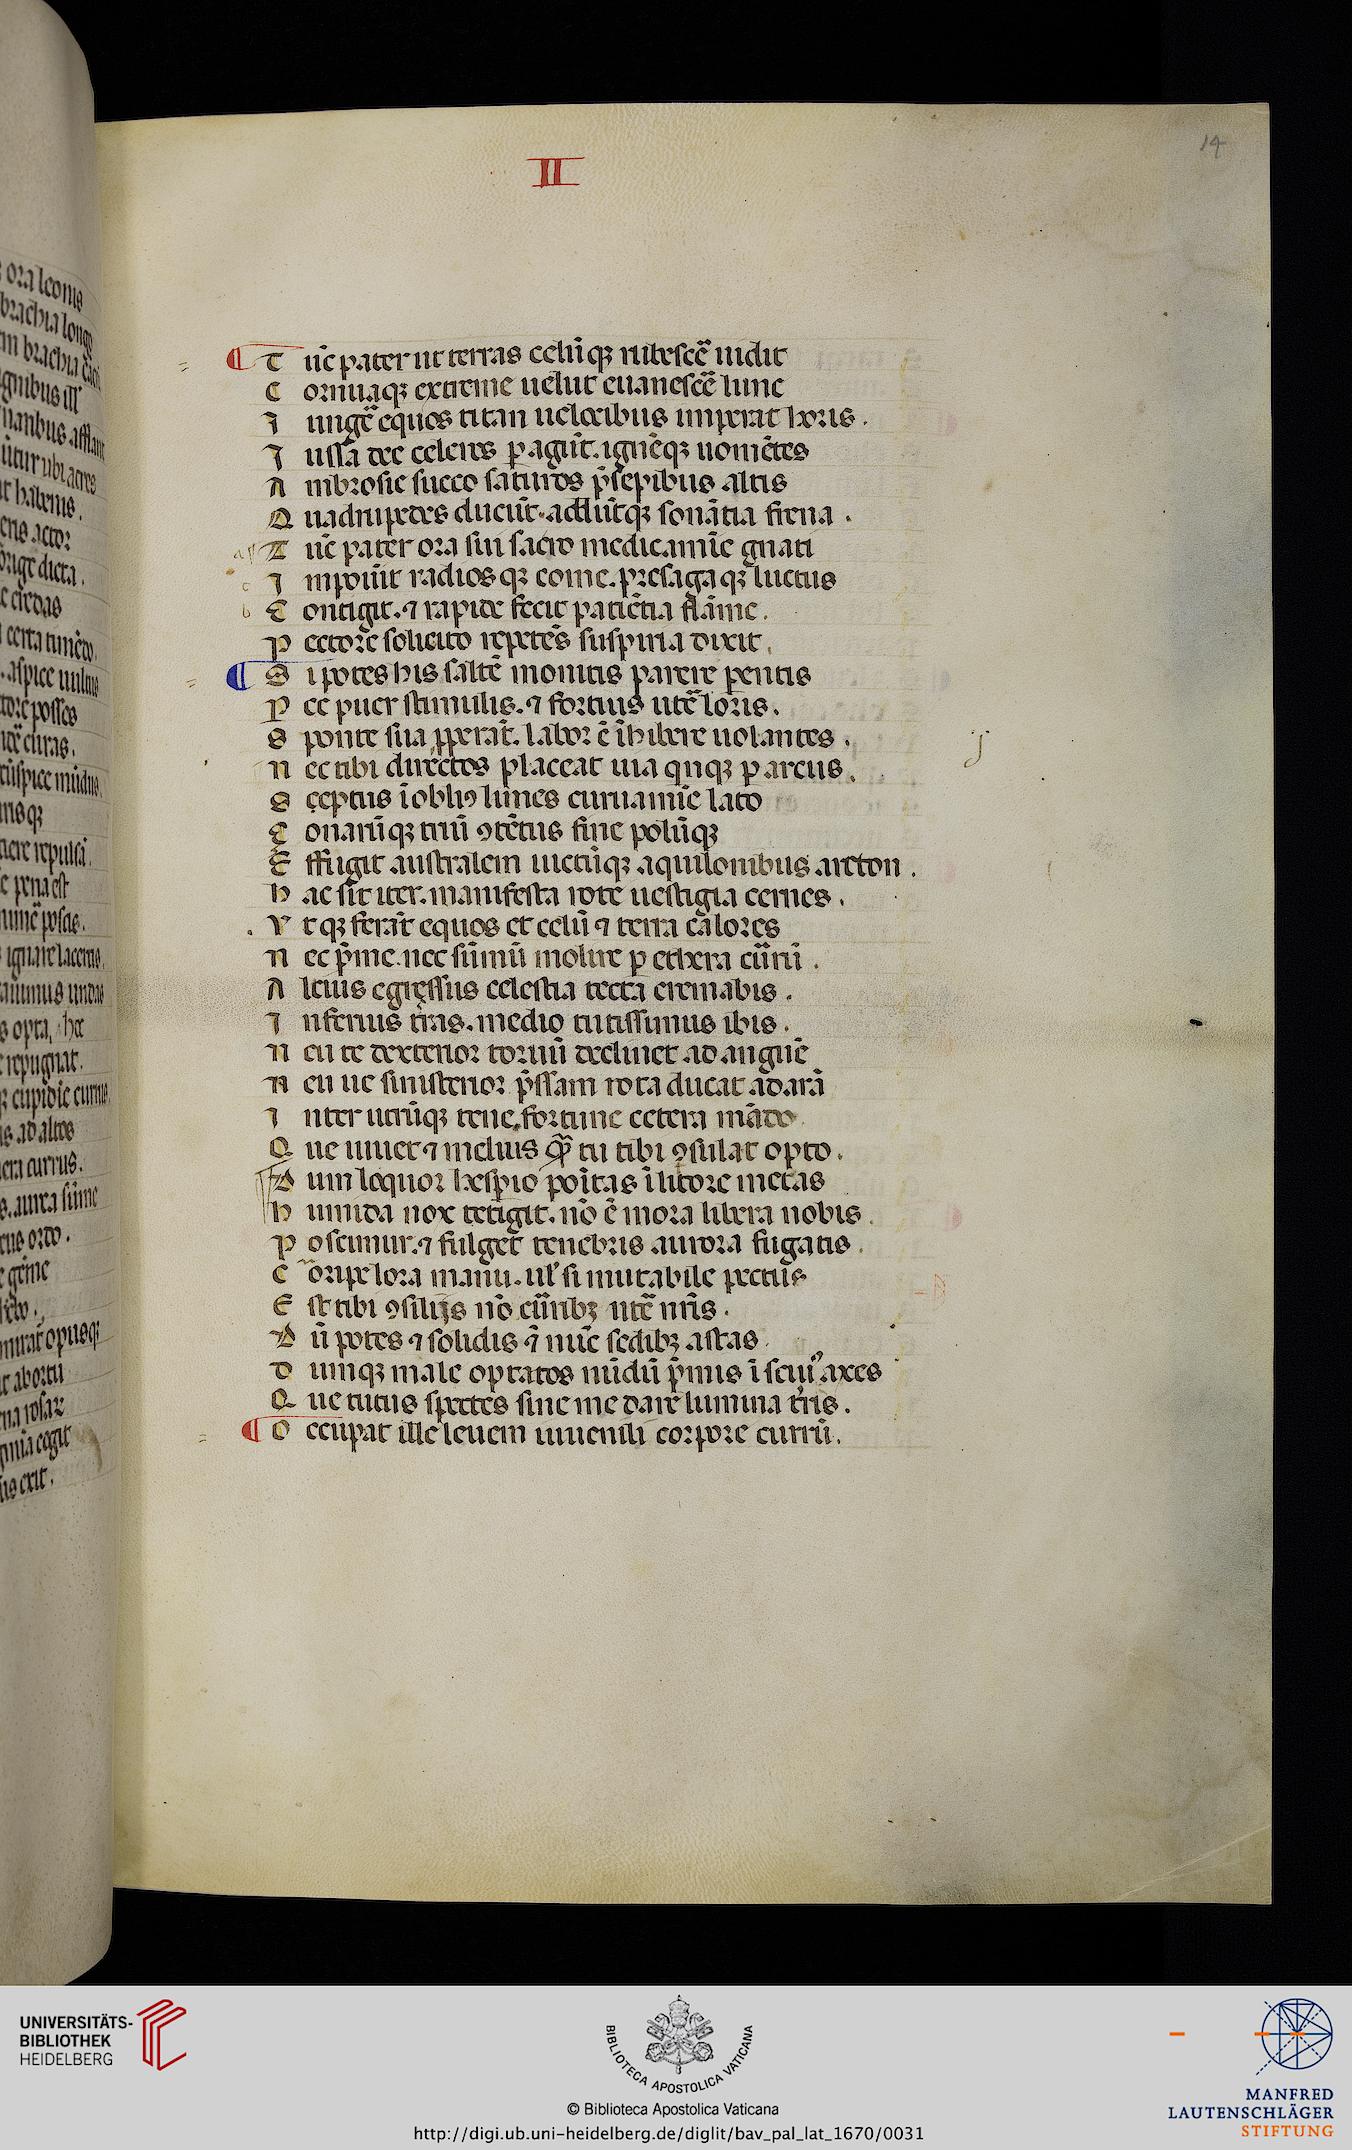 14
II
Tūc pater ut terras celūq; rubescē̄ uidit
Cornuaq; extreme uelut euanescē̄ lune
Iungē̄ equos titan uelocibus imperat horis.
Iussa dee celeres pagūt. ignēq; uomētes
Ambrosie succo saturos p̄sepibus altis
Quadrupedes ducūt. addūtq; sonātia frena.
Tūc pater ora sui sacro medicamīe gnati
Inposuit radiosq; come. presagaq; luctus
Contigit. ⁊ rapide fecit patiētia flāme.
Pectore solicito repetēs suspiria dixit.
Si potes his saltē monitis parere pentis
Pce puer stimulis. ⁊ fortius utē̄ loris.
Sponte sua pperāt. labor ē īhibere uolantes.
Nec tibi directos placeat uia quq; p arcus.
Sectus ī obliꝰ limes curuamīe lato
Zonarūq; triū ꝯtētus fine polūq;
Effugit australem iuctūq; aquilonibus arcton.
Hac sit iter. manifesta rote uestigia cernes.
Vtq; ferāt equos et celū ⁊ terra calores
Nec p̄me. nec sūmū molire p ethera currū.
Alcius egressus celestia tecta cremabis.
Inferius t̄ras. medio tutissimus ibis.
Neu te dexterior tortū declinet ad anguē
Neu ue sinisterior p̄ssam rota ducat ad arā
Inter utrūq; tene. fortune cetera mādo
Que iuuet ⁊ melius q̄ tu tibi ꝯsulat opto.
Dum loquor hesperio positas ī litore metas
Humida nox tetigit. nō ē mora libera nobis.
Poscimur. ⁊ fulget tenebris aurora fugatis.
Coripe lora manu. ul' si mutabile pectus
Est tibi ꝯsilijs nō currib; utē̄ nr̄is.
Dū potes ⁊ solidis ⁊ nūc sedib; astas.
Dumq; male optatos nūdū p̄mus ī scius axes
Que tutus spectes sine me dare lumina t̄ris.
Occupat ille leuem iuuenili corpore currū.
UNIVERSITÄTS-
BIBLIOTHEK
HEIDELBERG
BIBLIOTECA APOSTOLICA VATICANA
© Biblioteca Apostolica Vaticana
http://digi.ub.uni-heidelberg.de/diglit/bav_pal_lat_1670/0031
MANFRED
LAUTENSCHLÄGER
STIFTUNG